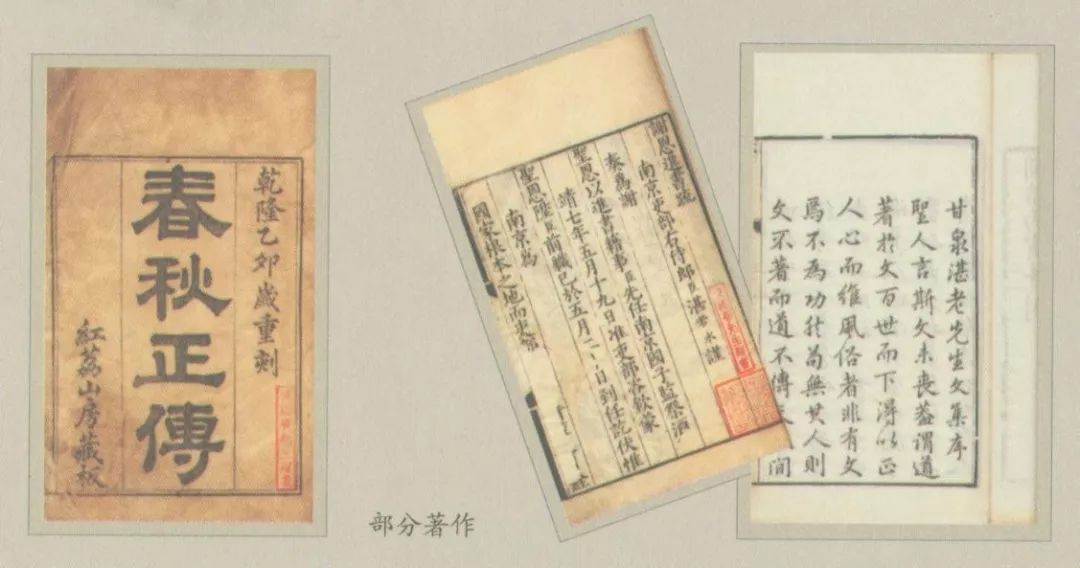 乾隆乙卯歲重刻
春秋正傳
紅茘山房藏板
謝恩進書疏
南京吏部右侍郎臣湛若水謹
奏為謝
聖恩以進書籍事臣先任南京國子監祭酒
靖七年五月十九日准吏部咨欽蒙
聖恩陞臣前職已於五月二日到任訖伏惟
南京為
國家根本之地而吏
甘泉湛老先生文集序
聖人言斯文未喪蓋謂道
著於文百世而下得以正
人心而維風俗者非有文
焉不為功然苟無其人則
文不著而道不傳間
部分著作